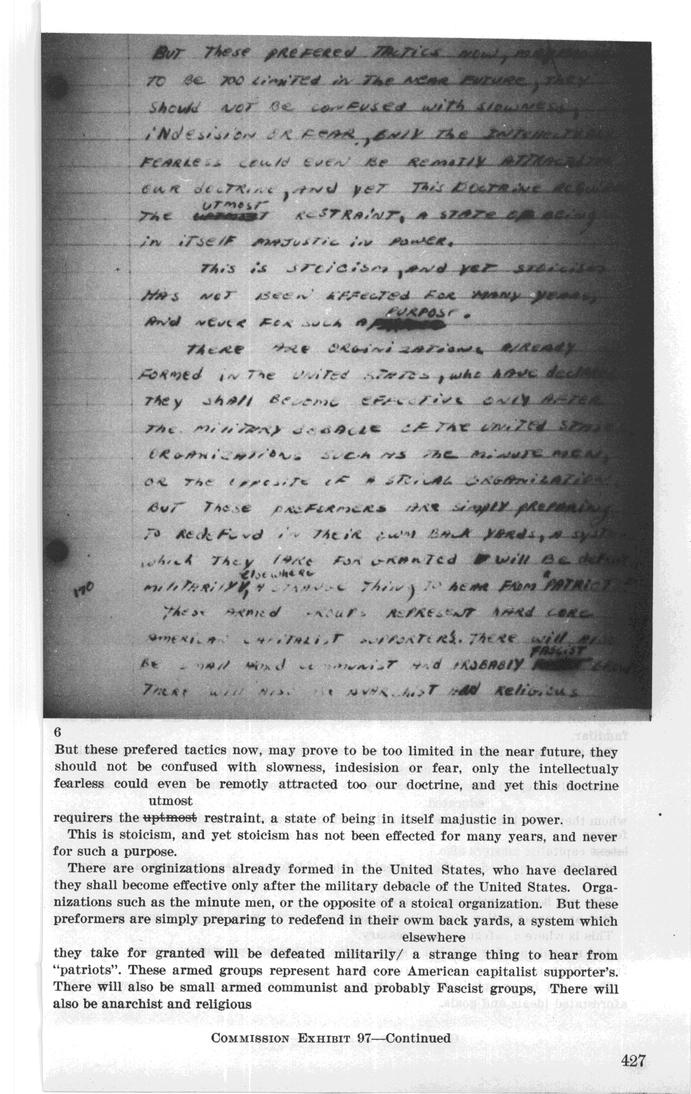 BUT THESE PREFERED TACTICS NOW, MAY
TO BE TOO LIMITED IN THE NEAR FUTURE, THEY
SHOULD NOT BE CONFUSED WITH SLOWNESS,
INDESISION OR FEAR, ONLY THE INTELECTUALY
FEARLESS COULD EVEN BE REMOTLY ATTRACTED
OUR DOCTRINE, AND YET THIS DOCTRINE
UTMOST
THE RESTRAINT, A STATE OF BEING
IN ITSELF MAJUSTIC IN POWER.
THIS IS STOICISM, AND YET STOICISM
HAS NOT BEEN EFFECTED FOR MANY YEARS,
PURPOSE.
AND NEVER FOR SUCH A
THERE ARE ORGINIZATIONS ALREADY
FORMED IN THE UNITED STATES, WHO HAVE DECLARED
THEY SHALL BECOME EFFECTIVE ONLY AFTER
THE MILITARY DEBACLE OF THE UNITED STATES
ORGANIZATIONS SUCH AS THE MINUTE MEN,
OR THE OPPOSITE OF A STOICAL ORGANIZATION.
BUT THESE PREFORMERS ARE SIMPLY PREPARING
TO REDEFEND IN THEIR OWN BACK YARDS, A SYSTEM
WHICH THEY TAKE FOR GRANTED WILL BE
ELSEWHERE
170 MILITARILY, A STRANGE THING TO HEAR FROM PATRIOT
THESE ARMED GROUPS REPRESENT HARD CORE
AMERICAN CAPITALIST SUPPORTER'S. THERE WILL ALSO
FASCIST
BE SMALL COMMUNIST AND PROBABLY
THERE WILL ALSO BE ANARCHIST AND RELIGIOUS
6
But these prefered tactics now, may prove to be too limited in the near future, they
should not be confused with slowness, indesision or fear, only the intellectualy
fearless could even be remotly attracted too our doctrine, and yet this doctrine
utmost
requirers the uptmost restraint, a state of being in itself majustic in power.
This is stoicism, and yet stoicism has not been effected for many years, and never
for such a purpose.
There are orginizations already formed in the United States, who have declared
they shall become effective only after the military debacle of the United States. Orga-
nizations such as the minute men, or the opposite of a stoical organization. But these
preformers are simply preparing to redefend in their owm back yards, a system which
elsewhere
they take for granted will be defeated militarily/ a strange thing to hear from
"patriots". These armed groups represent hard core American capitalist supporter's.
There will also be small armed communist and probably Fascist groups, There will
also be anarchist and religious
COMMISSION EXHIBIT 97—Continued
427